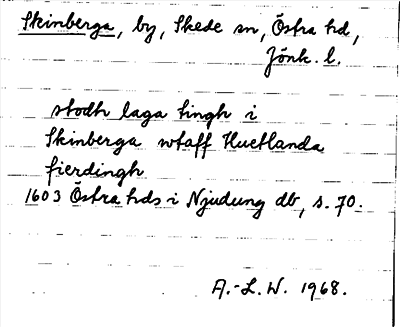 Skinberga, by, Skede sn, Östra hd,
Jönk. l.
stodh laga tingh i
Skinberga wtaff Huetlanda
fierdingh
1603 Östra hds i Njudung db, s. 70.
A.-L.W. 1968.